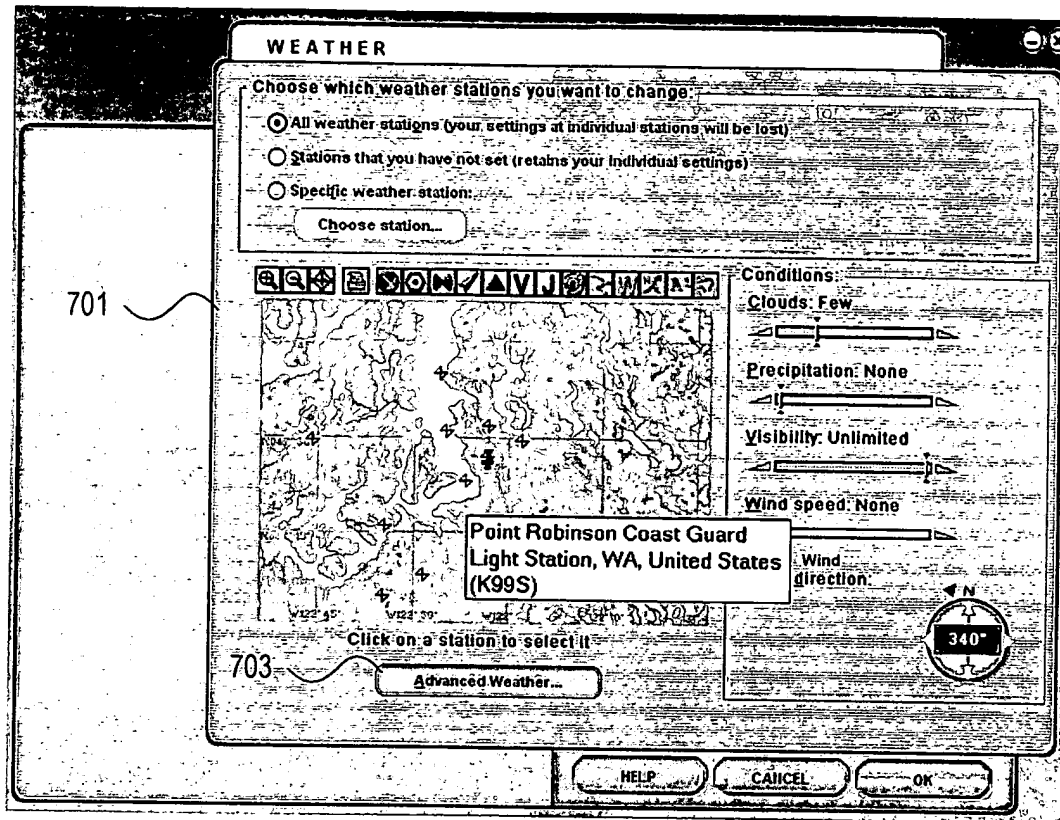 WEATHER
Choose which weather stations you want to change:
All weather stations (your settings at individual stations will be lost)
Stations that you have not set (retains your individual settings)
Specific weather station:
Choose station...
701
Conditions:
Clouds: Few
Precipitation: None
Visibility: Unlimited
Wind speed: None
Wind direction:
N
340°
Point Robinson Coast Guard
Light Station, WA, United States
(K99S)
Click on a station to select it
703
Advanced Weather...
HELP
CANCEL
OK